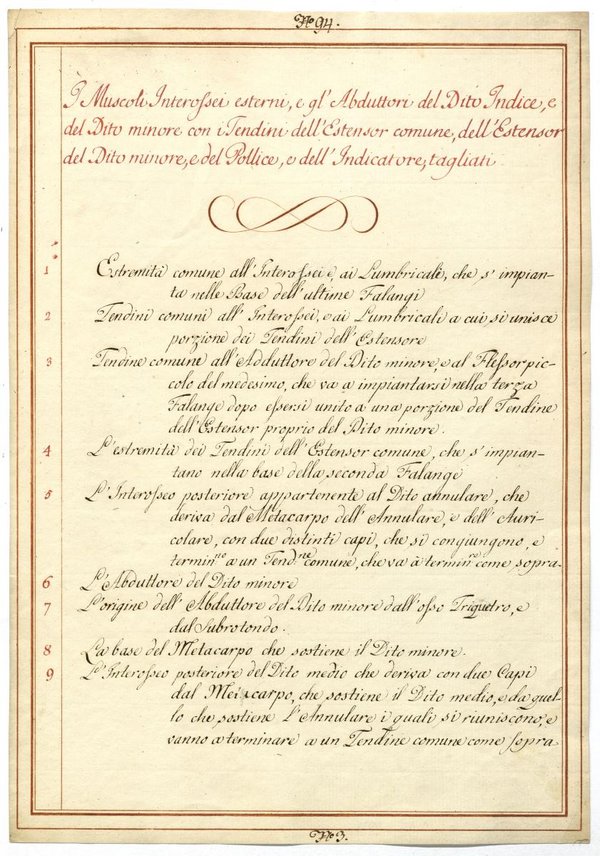 No. 94.
I Muscoli Interossei esterni, e gl' Abduttori del Dito Indice, e
del Dito minore con i Tendini dell' Estensor comune, dell' Estensor
del Dito minore, e del Pollice, e dell' Indicatore, tagliati
1 Estremità comune all' Interossei e, ai Lumbricali, che s' impian-
ta nelle Base dell' ultime Falangi
2 Tendini comuni all' Interossei, e ai Lumbricali a cui si unisce
porzione dei Tendini dell' Estensore
3 Tendine comune all' Adduttore del Dito minore, e al Flessor pic-
colo del medesimo, che va a impiantarsi nella terza
Falange dopo essersi unito a una porzione del Tendine
dell' Estensor proprio del Dito minore.
4 L' estremità dei Tendini dell' Estensor comune, che s' impian-
tano nella base della seconda Falange
5 L' Interosseo posteriore appartenente al Dito annulare, che
deriva dal Metacarpo dell' Annulare, e dell' Auri-
colare, con due distinti capi, che si congiungono, e
termin.no a un Tend.ne comune, che va à termin.re come sopra.
6 L' Abduttore del Dito minore
7 L' origine dell' Abduttore del Dito minore dall' osso Triquetro, e
dal Subrotondo.
8 La base del Metacarpo che sostiene il Dito minore.
9 L' Interosseo posteriore del Dito medio che deriva con due Capi
dal Metacarpo, che sostiene il Dito medio, e da quel-
lo che sostiene l' Annulare i quali si riuniscono, e
vanno a terminare a un Tendine comune come sopra
No. 3.